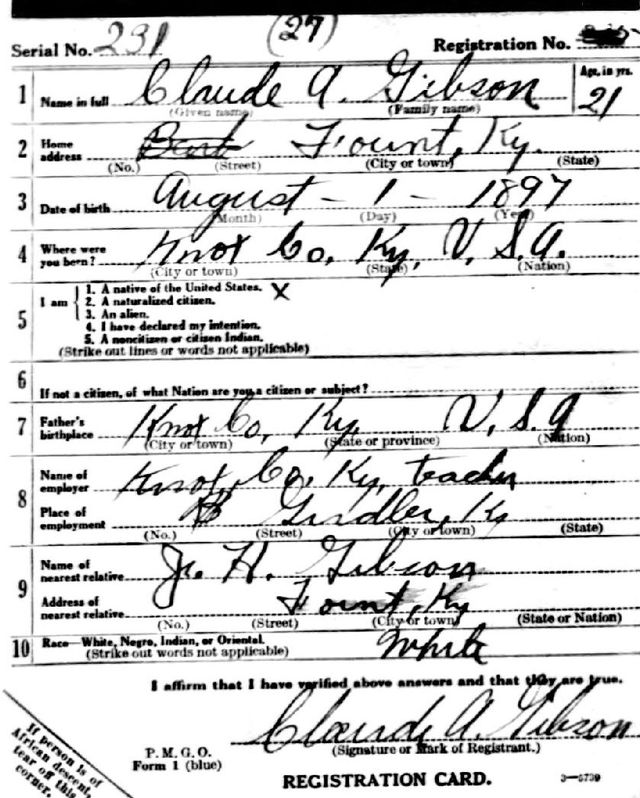 Serial No. 231 (27) Registration No.
1 Name in full Claude A. Gibson Age, in yrs. 21
(Given name) (Family name)
2 Home address Fount, Ky.
(No.) (Street) (City or town) (State)
3 Date of birth August - 1 - 1897
(Month) (Day) (Year)
4 Where were you born? Knox Co, Ky, U. S. A.
(City or town) (State) (Nation)
5 I am
1. A native of the United States. X
2. A naturalized citizen.
3. An alien.
4. I have declared my intention.
5. A noncitizen or citizen Indian.
(Strike out lines or words not applicable)
6 If not a citizen, of what Nation are you a citizen or subject?
7 Father's birthplace Knox Co, Ky, U. S. A
(City or town) (State or province) (Nation)
8 Name of employer Knox Co. Ky, teacher
Place of employment Girdler, Ky
(No.) (Street) (City or town) (State)
9 Name of nearest relative J. H. Gibson
Address of nearest relative Fount, Ky
(No.) (Street) (City or town) (State or Nation)
10 Race—White, Negro, Indian, or Oriental. White
(Strike out words not applicable)
I affirm that I have verified above answers and that they are true.
Claude A. Gibson
(Signature or Mark of Registrant.)
P. M. G. O.
Form 1 (blue)
REGISTRATION CARD. 3—5739
If person is of
African descent,
tear off this
corner.